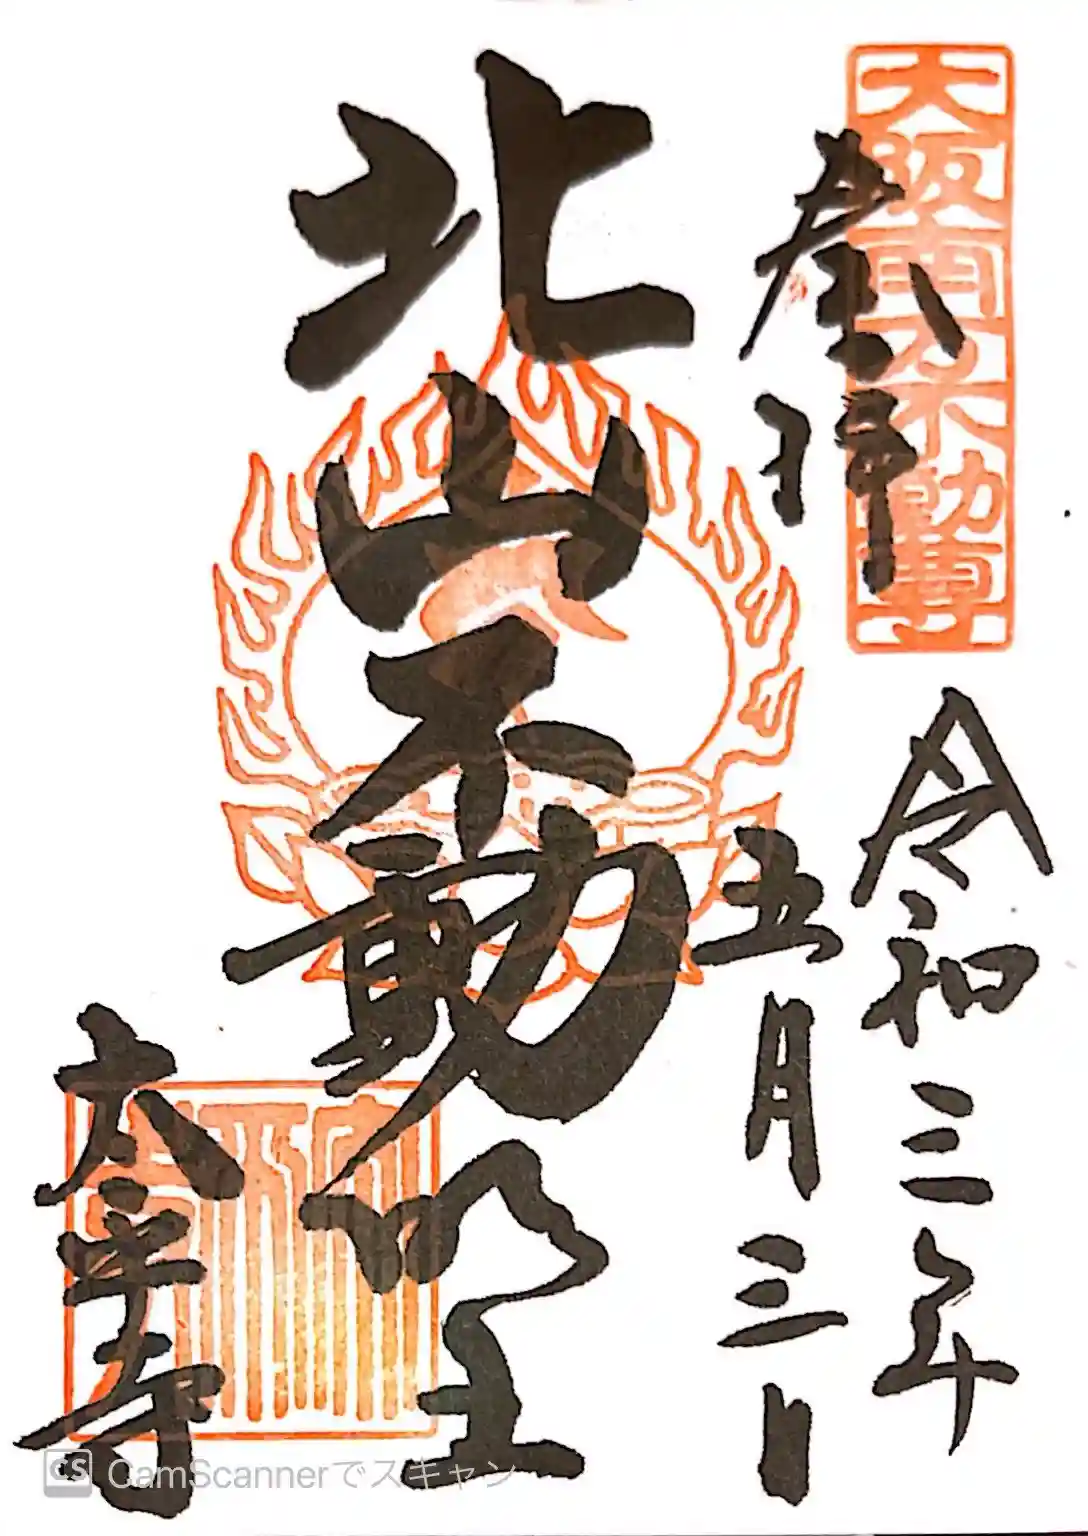 大阪南不動尊
奉拝
令和三年
五月三日
北山不動明王
太平寺
CS CamScannerでスキャン